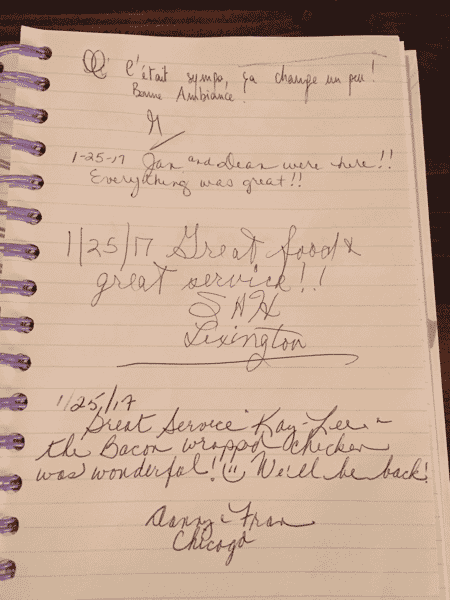 C'était sympa, ça change un peu!
Bonne Ambiance.
1-25-17 Jan and Dean were here!!
Everything was great!!
1/25/17 Great food &
great service!!
S H H
Lexington
1/25/17
Great Service Kay-Lee -
the Bacon wrapped chicken
was wonderful! We'll be back!
Danny & Fran
Chicago